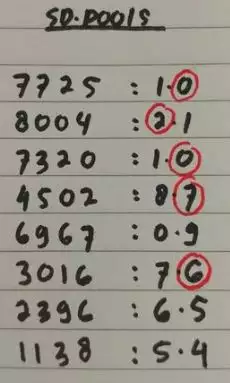 SD.POOLS
7725 : 1.0
8004 : 2.1
7320 : 1.0
4502 : 8.7
6967 : 0.9
3016 : 7.6
2396 : 6.5
1138 : 5.4